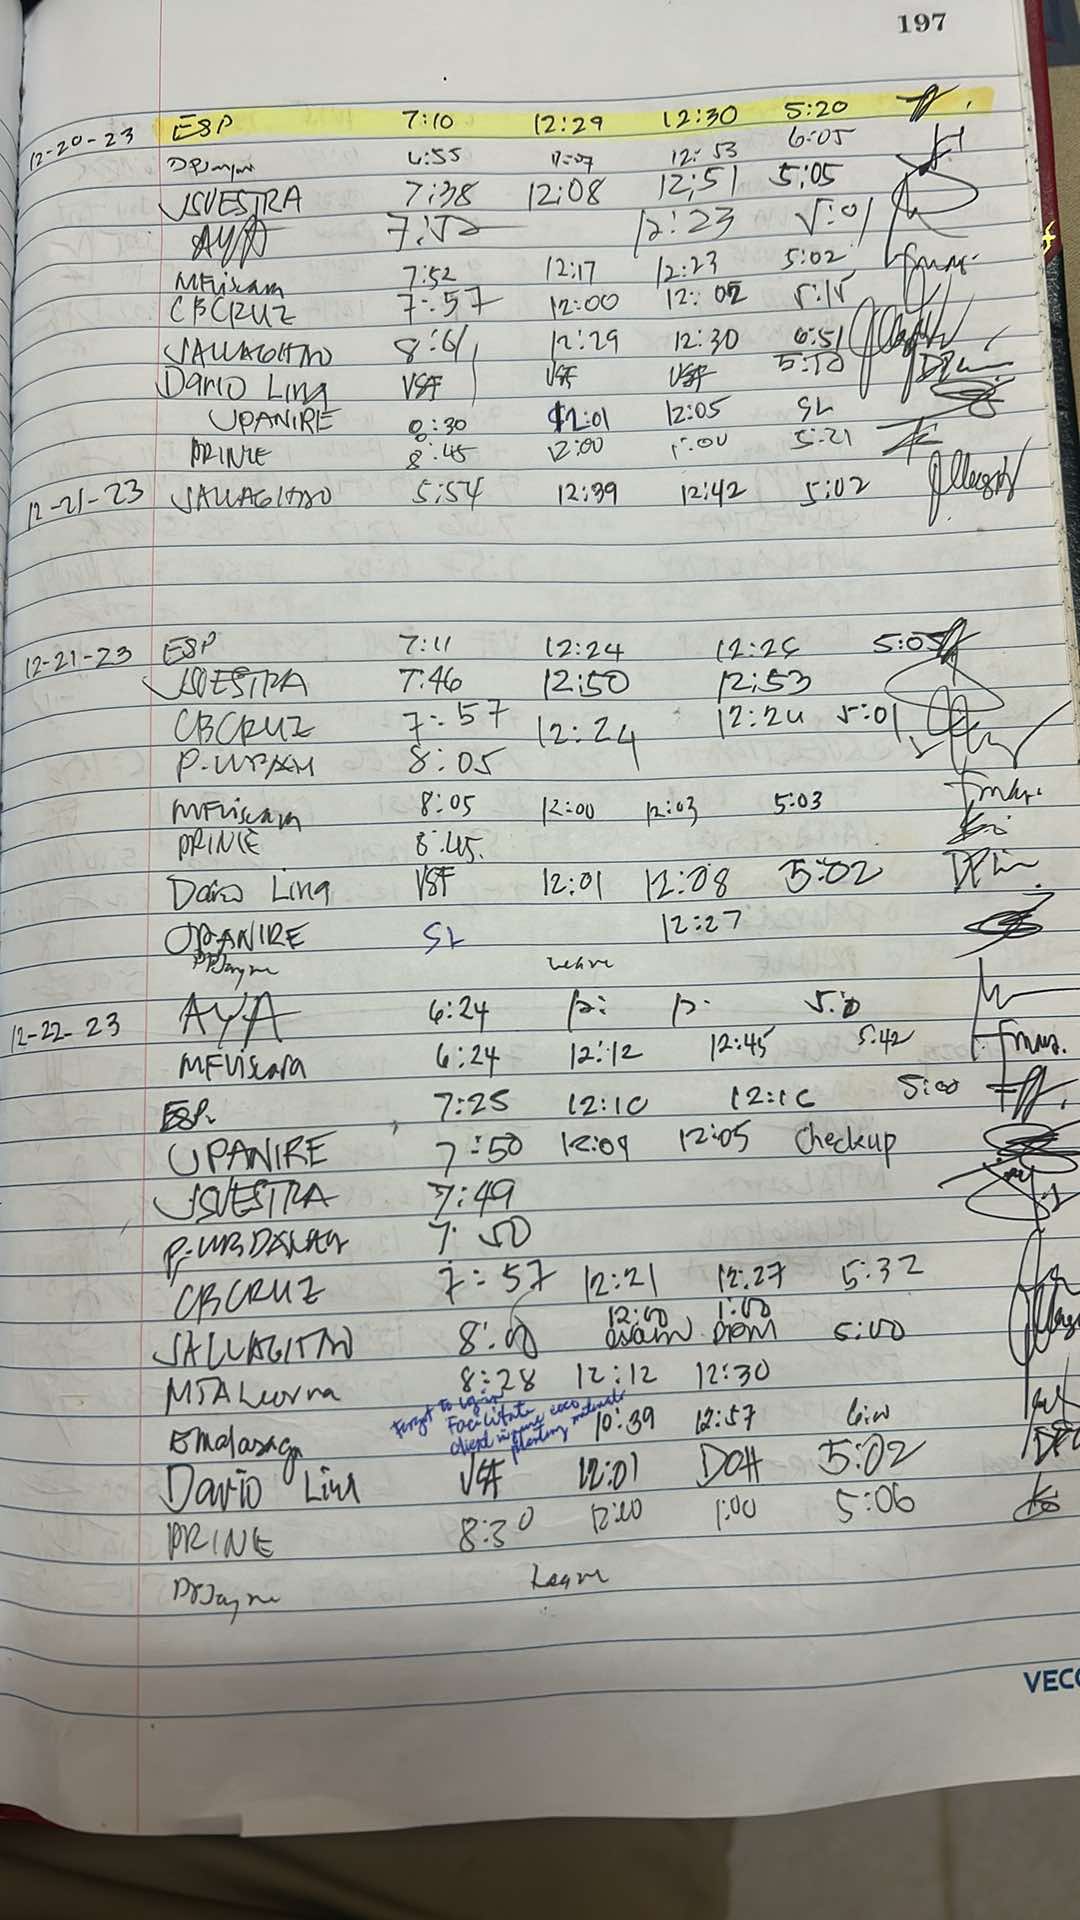 197
12-20-23 ESP 7:10 12:29 12:30 5:20
6:55 12:53 6:05
JSVESTRA 7:38 12:08 12:51 5:05
AYA 7:52 12:23 5:01
MFViscara 7:52 12:17 12:23 5:02
CBCRUZ 7:57 12:00 12:02 5:15
JALLAGITAO 12:29 12:30 6:51
Dario Ling VSF VSF VSF 5:50
UPANIRE 8:30 12:01 12:05 SL
PRINCE 8:45 12:00 1:00 5:21
12-21-23 JALLAGITAO 5:54 12:39 12:42 5:02
12-21-23 ESP 7:11 12:24 5:05
JSVESTRA 7:46 12:50 12:53
CBCRUZ 7:57 12:24 12:24 5:01
8:05
MFViscara 8:05 12:00 12:03 5:03
PRINCE 8:45.
Dario Ling VSF 12:01 12:08 5:02
UPANIRE SL 12:27
Leave
12-22-23 AYA 6:24 12: 12:
MFViscara 6:24 12:12 12:45 5:42
ESP. 7:25 12:10 5:00
UPANIRE 7:50 12:04 12:05 Checkup
JSVESTRA 7:49
7:50
CBCRUZ 7:57 12:21 12:27 5:32
12:00 1:00
JALLAGITAO 8:00 5:00
8:28 12:12 12:30
Forgot to log in
Facilitate
client
planting materials
10:39 12:57
Dario Ling VSF 12:01 5:02
PRINE 8:30 12:00 1:00 5:06
Leave
VECO